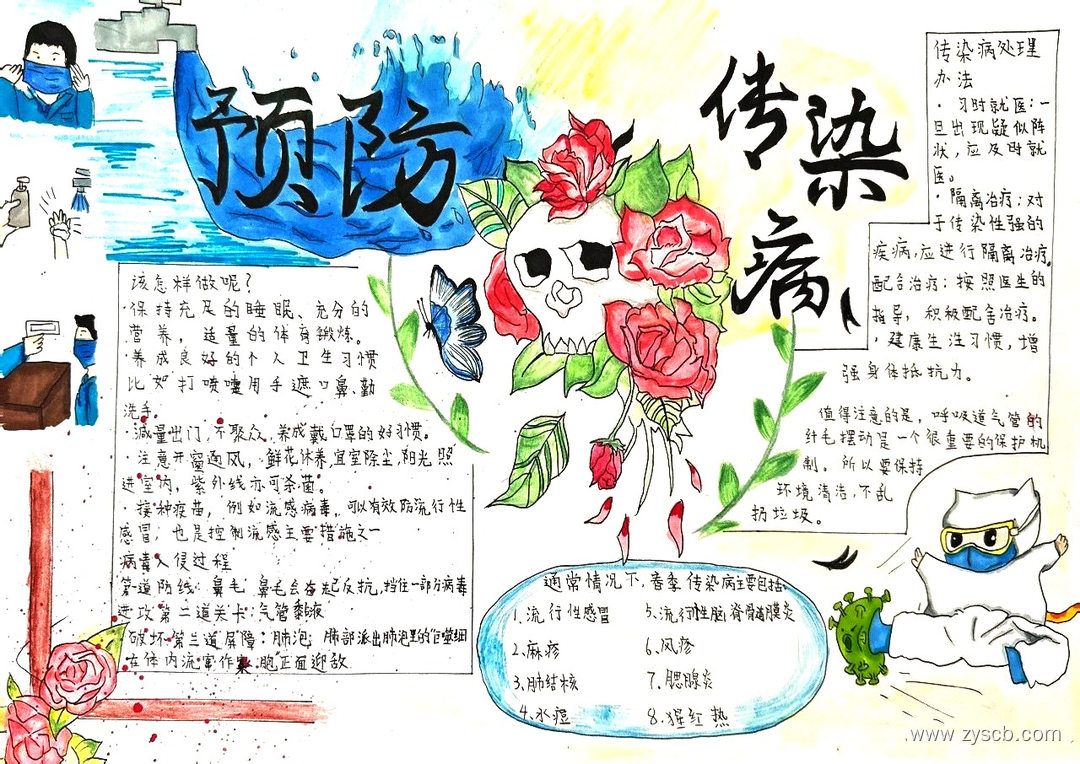 预防
传染病
传染病处理
办法
· 习时就医:一
旦出现疑似阵
状,应及时就
医。
· 隔离治疗:对
于传染性强的
疾病,应进行隔离治疗。
配合治疗:按照医生的
指导,积极配合治疗。
· 健康生活习惯,增
强身体抵抗力。
值得注意的是,呼吸道气管的
纤毛摆动是一个很重要的保护机
制。所以要保持
环境清洁,不乱
扔垃圾。
该怎样做呢?
·保持充足的睡眠、充分的
营养,适量的体育锻炼。
·养成良好的个人卫生习惯
比如打喷嚏用手遮口鼻,勤
洗手。
·减量出门,不聚众,养成戴口罩的好习惯。
·注意开窗通风,鲜花休养,宜室除尘,阳光照
进室内,紫外线亦可杀菌。
·接种疫苗,例如流感病毒,可以有效防流行性
感冒;也是控制流感主要措施之一
病毒入侵过程
第一道防线:鼻毛 鼻毛会奋起反抗,挡住一部分病毒
进攻第二道关卡:气管黏液
破坏第三道屏障:肺泡;肺部派出肺泡里的巨噬细
在体内流窜作案.胞正面迎敌.
通常情况下,春季传染病主要包括:
1.流行性感冒 5.流行性脑脊骨髓膜炎
2.麻疹 6.风疹
3.肺结核 7.腮腺炎
4.水痘 8.猩红热
www.zyscb.com